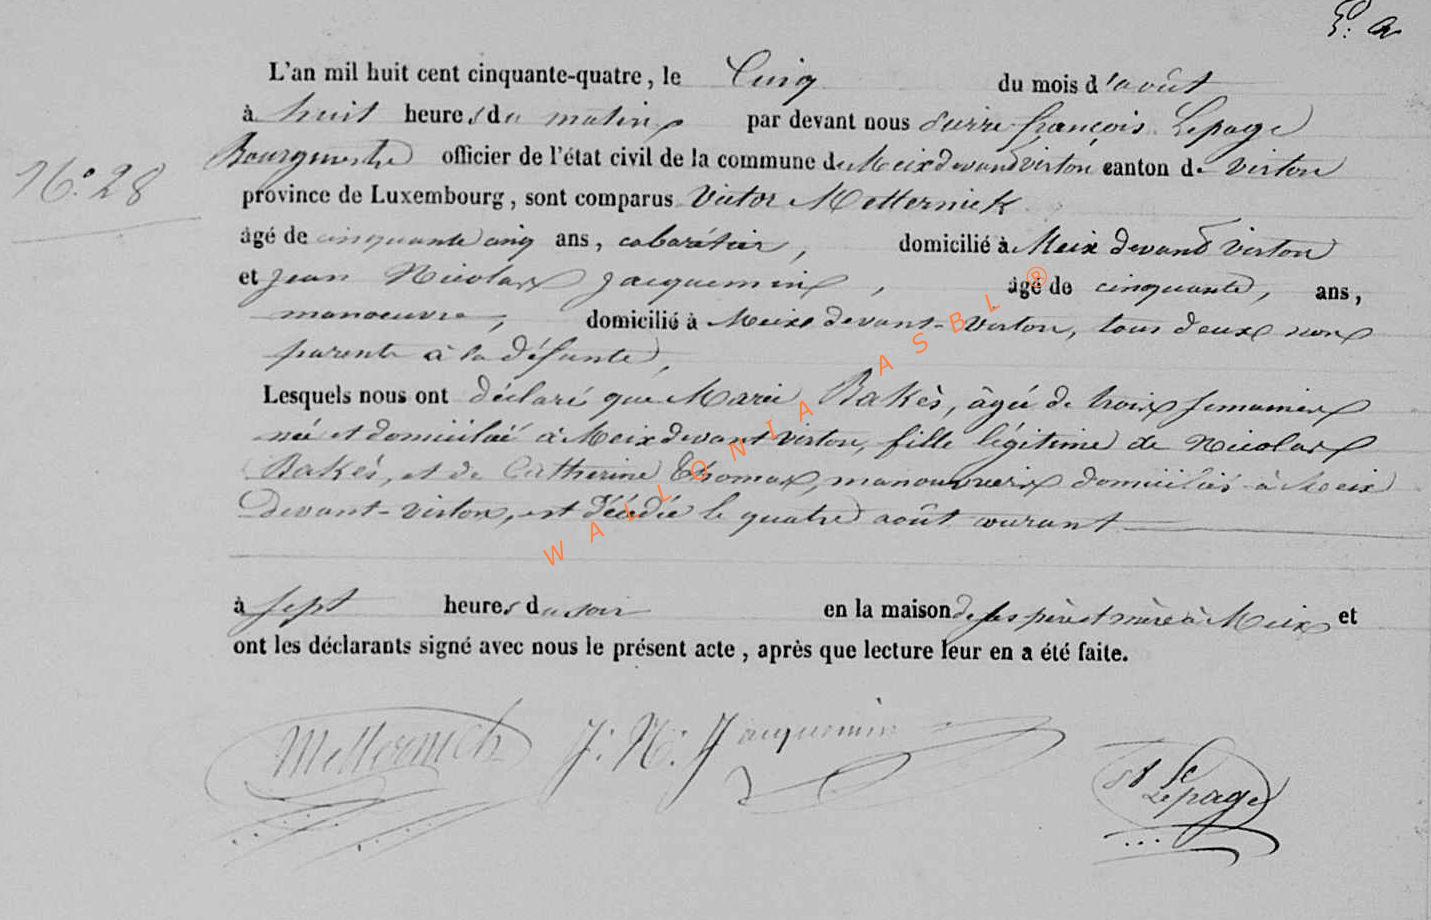 L'an mil huit cent cinquante-quatre, le Cinq du mois d'août
à huit heures du matin par devant nous Pierre françois Lepage
Bourgmestre officier de l'état civil de la commune de Meix devant virton canton de virton
N.° 28
province de Luxembourg, sont comparus Victor Metternick
âgé de cinquante cinq ans, cabarétier, domicilié à Meix devand Virton
et Jean Nicolas Jacquemin, âgé de cinquante, ans,
manoeuvre, domicilié à Meix devant-Virton, tous deux non
parents à la défunte,
Lesquels nous ont déclaré que Marie Bakès, âgée de trois semaines
née et domiciliée à Meix devant virton, fille légitime de Nicolas
Bakès, et de Catherine Thomas, manouvriers domiciliés à Meix
Devant-virton, est décédée le quatre août courant
à sept heures du soir en la maison de ses père et mère à Meix et
ont les déclarants signé avec nous le présent acte, après que lecture leur en a été faite.
Metternich J. N. Jacquemin
Lepage
WALLONIA ASBL ®